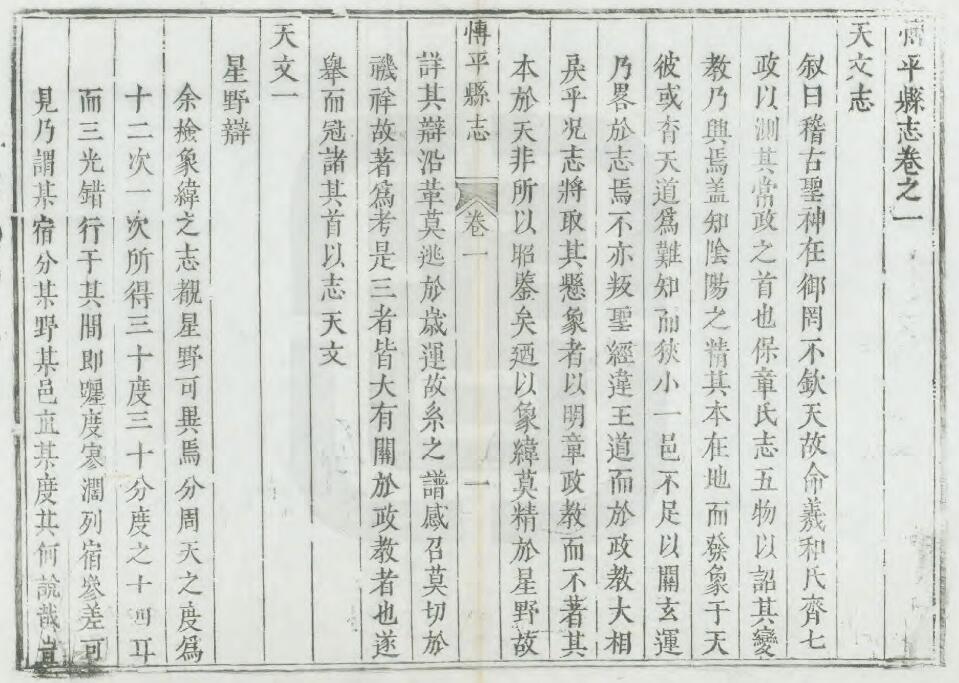 博平縣志卷之一
天文志
叙曰稽古聖神在御罔不欽天故命羲和氏齊七
政以測其常政之首也保章氏志五物以詔其變
教乃興焉盖知陰陽之精其本在地而發象于天
彼或杳天道爲難知而狹小一邑不足以關玄運
乃畧於志焉不亦叛聖經違王道而於政教大相
戾乎况志將取其懸象者以明章政教而不著其
本於天非所以昭鑒矣廼以象緯莫精於星野故
博平縣志
卷一
一
詳其辯沿革莫逃於歲運故系之譜感召莫切於
禨祥故著爲考是三者皆大有關於政教者也遂
舉而冠諸其首以志天文
天文一
星野辯
余撿象緯之志觀星野可異焉分周天之度爲
十二次一次所得三十度三十分度之十四耳
而三光錯行于其間即躔度寒濶列宿參差可
見乃謂某宿分某野某邑直某度其何說哉豈